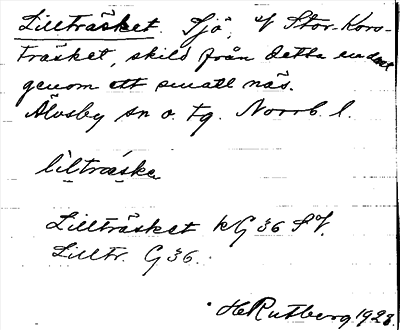 Lillträsket. Sjö, V Stor-Kors-
träsket, skild från detta endast
genom ett smalt näs.
Älvsby sn o. tg. Norrb. l.
lìlträ́ska
Lillträsket kG 36 SV.
Lilltr. G 36.
H Rutberg 1928.